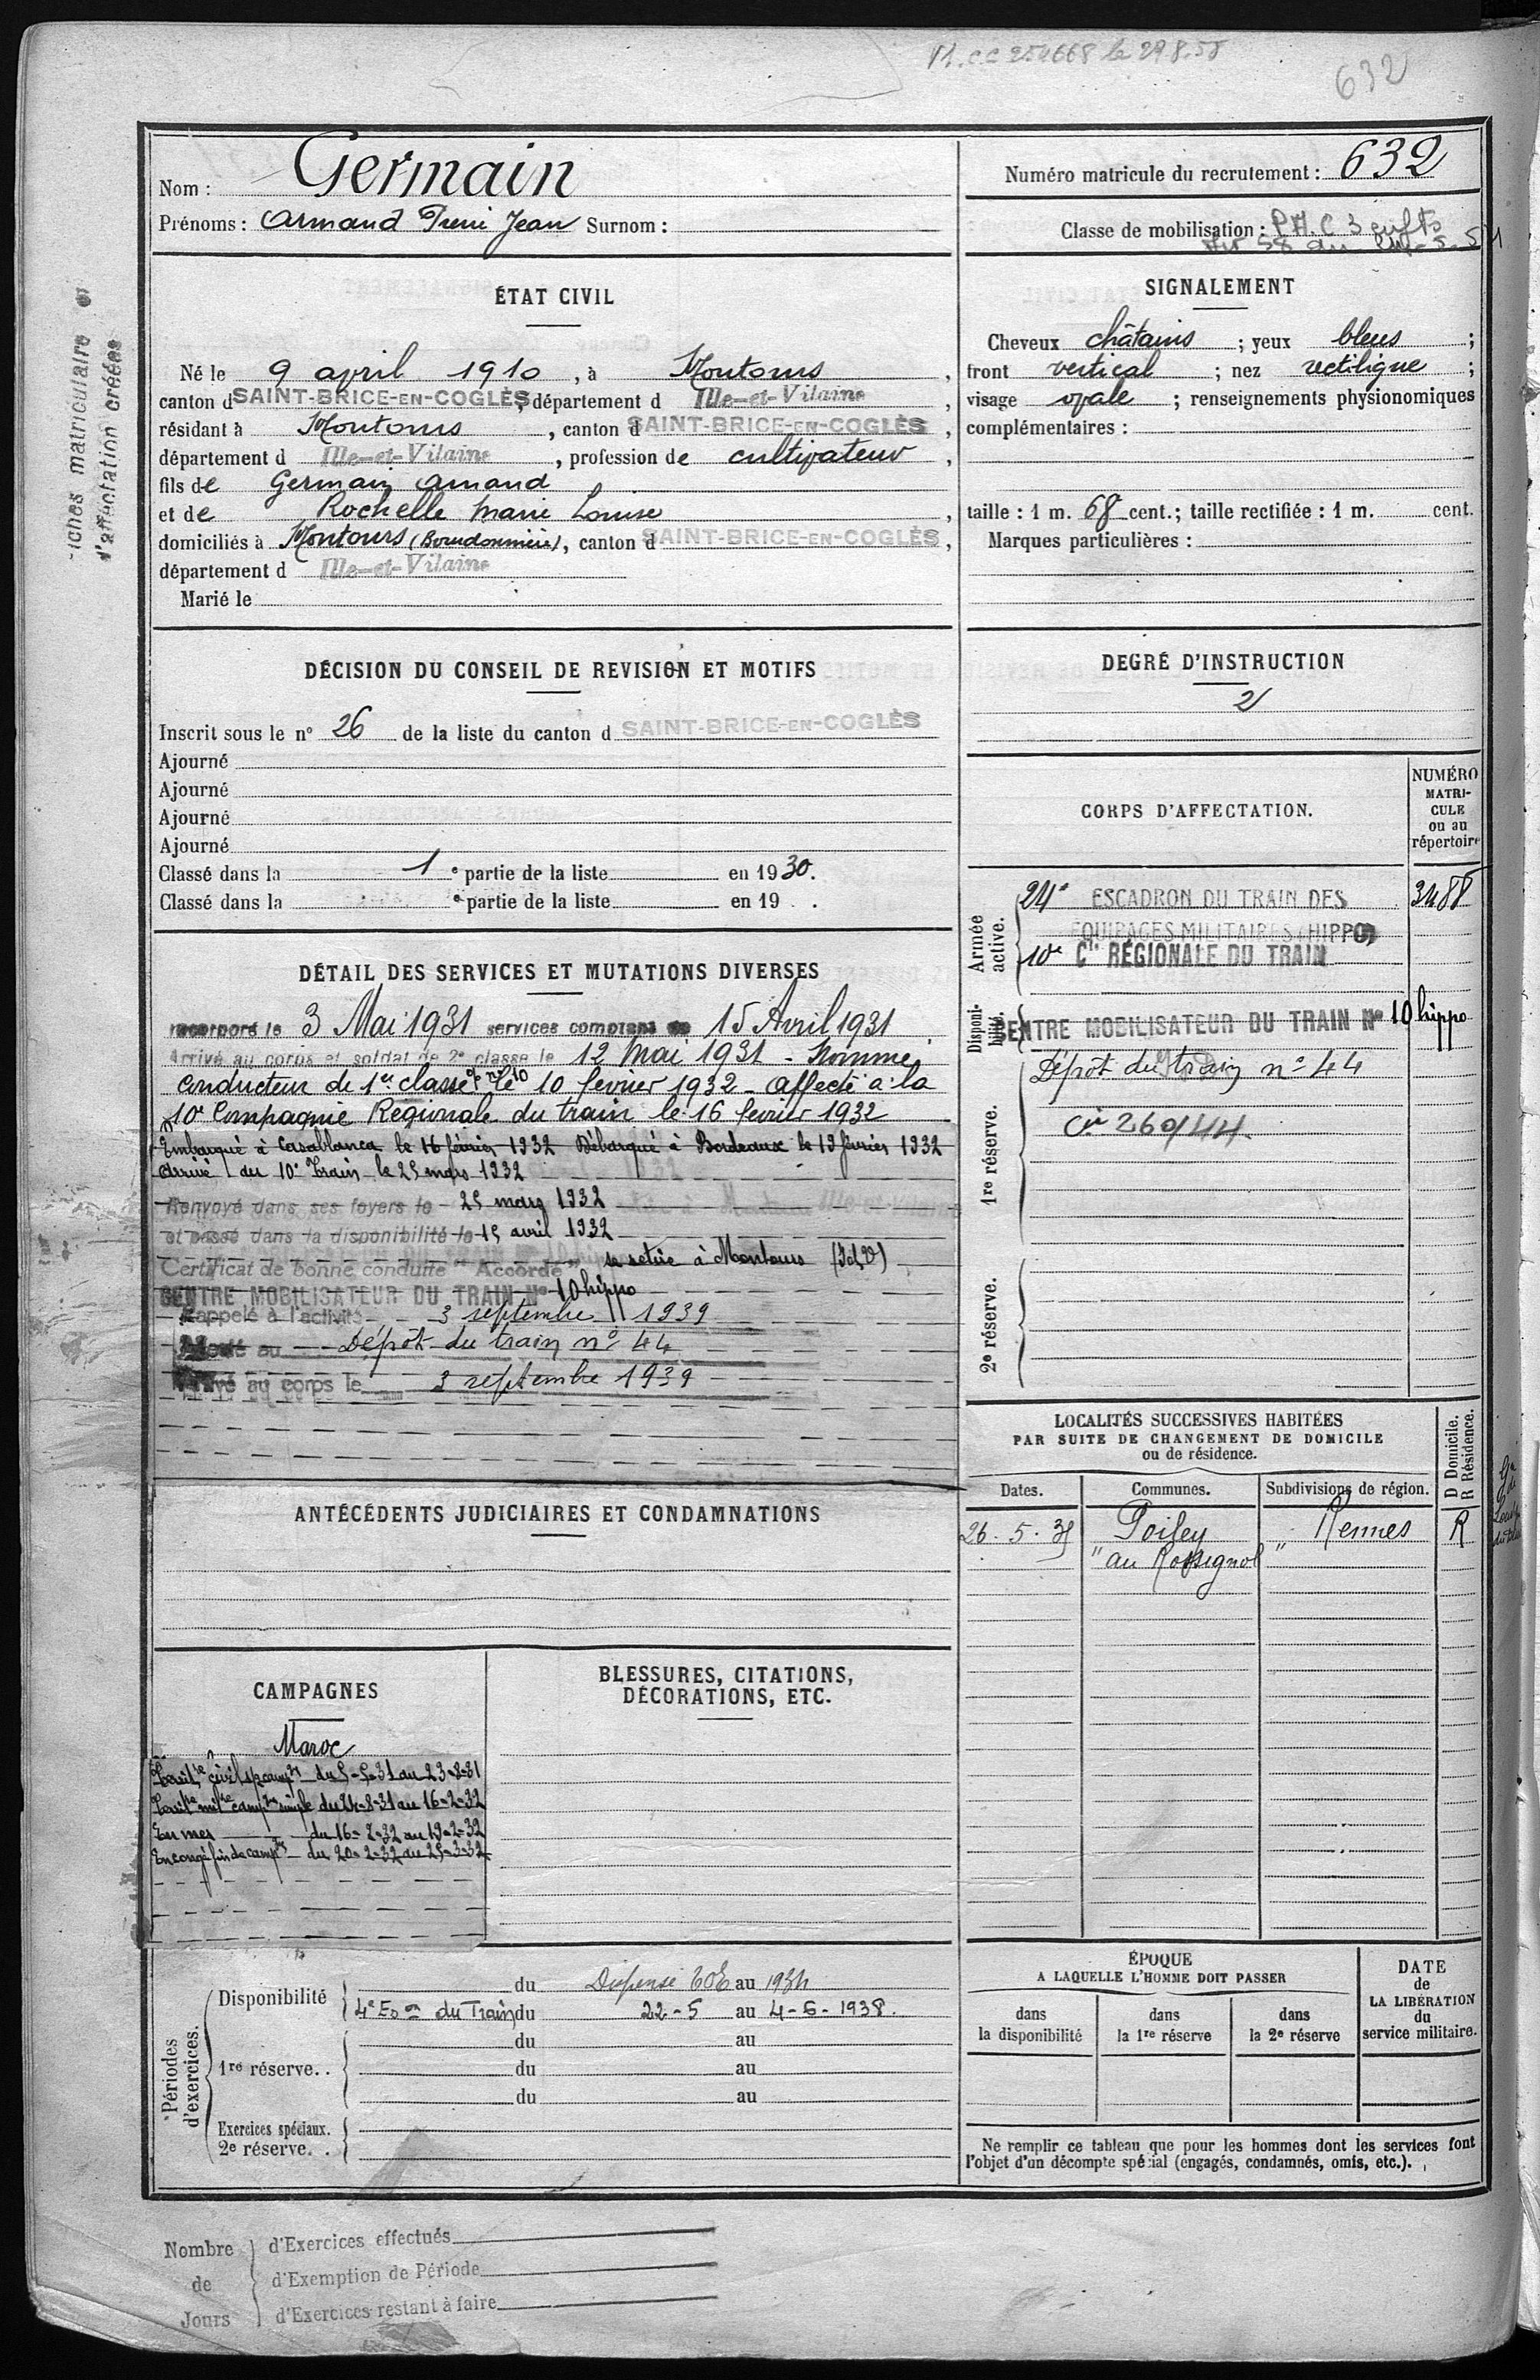 632
Nom : Germain
Prénoms : Armand Pierre Jean Surnom :
ÉTAT CIVIL
Né le 9 avril 1910, à Montours,
canton d SAINT-BRICE-EN-COGLÈS, département d Ille-et-Vilaine,
résidant à Montours, canton d SAINT-BRICE-EN-COGLÈS,
département d Ille-et-Vilaine, profession de cultivateur,
fils de Germain Amand
et de Rochelle Marie Louise,
domiciliés à Montours, canton d SAINT-BRICE-EN-COGLÈS,
département d Ille-et-Vilaine
Marié le
DÉCISION DU CONSEIL DE REVISION ET MOTIFS
Inscrit sous le n° 26 de la liste du canton d SAINT-BRICE-EN-COGLÈS
Ajourné
Ajourné
Ajourné
Ajourné
Classé dans la 1 e partie de la liste en 1930.
Classé dans la e partie de la liste en 19 .
DÉTAIL DES SERVICES ET MUTATIONS DIVERSES
Incorporé le 3 Mai 1931 services comptant du 15 Avril 1931
Arrivé au corps et soldat de 2e classe le 12 Mai 1931 - Nommé
Conducteur de 1ère classe o/ n° 10 le 10 février 1932 - affecté à la
10e Compagnie Régionale du train le 16 février 1932
Embarqué à Casablanca le 16 février 1932 Débarqué à Bordeaux le 19 février 1932
Arrivé au 10e Train le 25 mars 1932
Renvoyé dans ses foyers le 25 mars 1932
et passé dans la disponibilité le 15 avril 1932
Certificat de bonne conduite "Accordé" se retire à Montours (I et V)
CENTRE MOBILISATEUR DU TRAIN N° 10 hippo
Rappelé à l'activité 3 septembre 1939
Affecté au Dépôt du train n° 44
Arrivé au corps le 3 septembre 1939
ANTÉCÉDENTS JUDICIAIRES ET CONDAMNATIONS
CAMPAGNES
Maroc
du 5-5-31 au 23-8-31
du 24-8-31 au 16-2-32
En mer du 16-2-32 au 19-2-32
En congé fin de camp. du 20-2-32 au 25-3-32
BLESSURES, CITATIONS,
DÉCORATIONS, ETC.
Périodes d'exercices.
Disponibilité du Dispensé TOE au 1934
4e Eson du Train du 22-5 au 4-6-1938.
1re réserve. . du au
du au
du au
Exercices spéciaux.
2e réserve. .
Numéro matricule du recrutement : 632
Classe de mobilisation : P.A.C 3 enfts
SIGNALEMENT
Cheveux châtains ; yeux bleus ;
front vertical ; nez rectiligne ;
visage ovale ; renseignements physionomiques
complémentaires :
taille : 1 m. 68 cent. ; taille rectifiée : 1 m. cent.
Marques particulières :
DEGRÉ D'INSTRUCTION
2
CORPS D'AFFECTATION.
NUMÉRO
MATRI-
CULE
ou au
répertoire
Armée active.
24e ESCADRON DU TRAIN DES 3488
ÉQUIPAGES MILITAIRES (HIPPO)
10e Cie RÉGIONALE DU TRAIN
Disponibilité.
CENTRE MOBILISATEUR DU TRAIN N° 10 hippo
1re réserve.
Dépôt du train n° 44
Cie 260/44
2e réserve.
LOCALITÉS SUCCESSIVES HABITÉES
PAR SUITE DE CHANGEMENT DE DOMICILE
ou de résidence.
D Domicile.
R Résidence.
Dates. Communes. Subdivisions de région.
26. 5. 35 Poilley Rennes R
" au Rossignol "
ÉPOQUE
A LAQUELLE L'HOMME DOIT PASSER
dans
la disponibilité
dans
la 1re réserve
dans
la 2e réserve
DATE
de
LA LIBÉRATION
du
service militaire.
Ne remplir ce tableau que pour les hommes dont les services font
l'objet d'un décompte spécial (engagés, condamnés, omis, etc.).
Fiches matriculaire et
d'affectation créées
Nombre
de
Jours
d'Exercices effectués
d'Exemption de Période
d'Exercices restant à faire